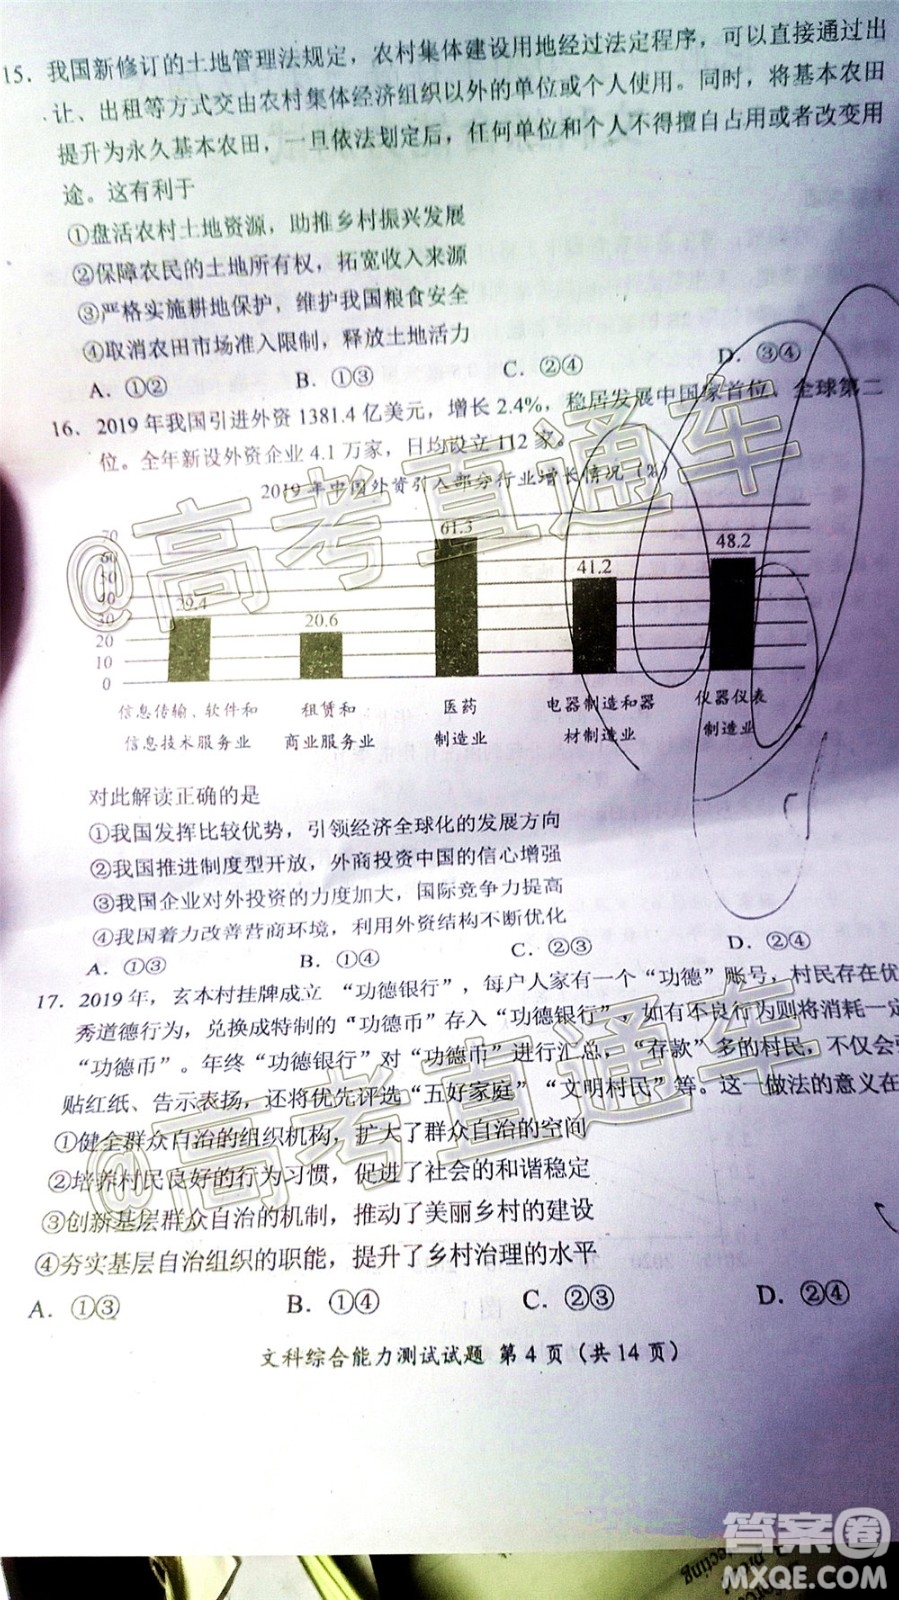 15．我国新修订的土地管理法规定，农村集体建设用地经过法定程序，可以直接通过出
让、出租等方式交由农村集体经济组织以外的单位或个人使用。同时，将基本农田
提升为永久基本农田，一旦依法划定后，任何单位和个人不得擅自占用或者改变用
途。这有利于
①盘活农村土地资源，助推乡村振兴发展
②保障农民的土地所有权，拓宽收入来源
③严格实施耕地保护，维护我国粮食安全
④取消农田市场准入限制，释放土地活力
A．①② B．①③ C．②④ D．③④
16．2019年我国引进外资1381.4亿美元，增长2.4%，稳居发展中国家首位、全球第二
位。全年新设外资企业4.1万家，日均设立112家。
2019年中国外资引入部分行业增长情况（%）
@高考直通车
70
60
50
40
30
20
10
0
29.4
20.6
61.3
41.2
48.2
信息传输、软件和 租赁和 医药 电器制造和器 仪器仪表
信息技术服务业 商业服务业 制造业 材制造业 制造业
对此解读正确的是
①我国发挥比较优势，引领经济全球化的发展方向
②我国推进制度型开放，外商投资中国的信心增强
③我国企业对外投资的力度加大，国际竞争力提高
④我国着力改善营商环境，利用外资结构不断优化
A．①③ B．①④ C．②③ D．②④
17．2019年，玄本村挂牌成立“功德银行”，每户人家有一个“功德”账号，村民存在优
秀道德行为，兑换成特制的“功德币”存入“功德银行”，如有不良行为则将消耗一定
“功德币”。年终“功德银行”对“功德币”进行汇总，“存款”多的村民，不仅会张
贴红纸、告示表扬，还将优先评选“五好家庭”“文明村民”等。这一做法的意义在
@高考直通车
①健全群众自治的组织机构，扩大了群众自治的空间
②培养村民良好的行为习惯，促进了社会的和谐稳定
③创新基层群众自治的机制，推动了美丽乡村的建设
④夯实基层自治组织的职能，提升了乡村治理的水平
A．①③ B．①④ C．②③ D．②④
文科综合能力测试试题 第4页（共14页）
答案圈
MXQE.COM